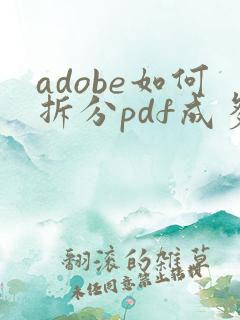 adobe如何
拆分pdf成多
翻滚的雑草
未经同意禁止转载